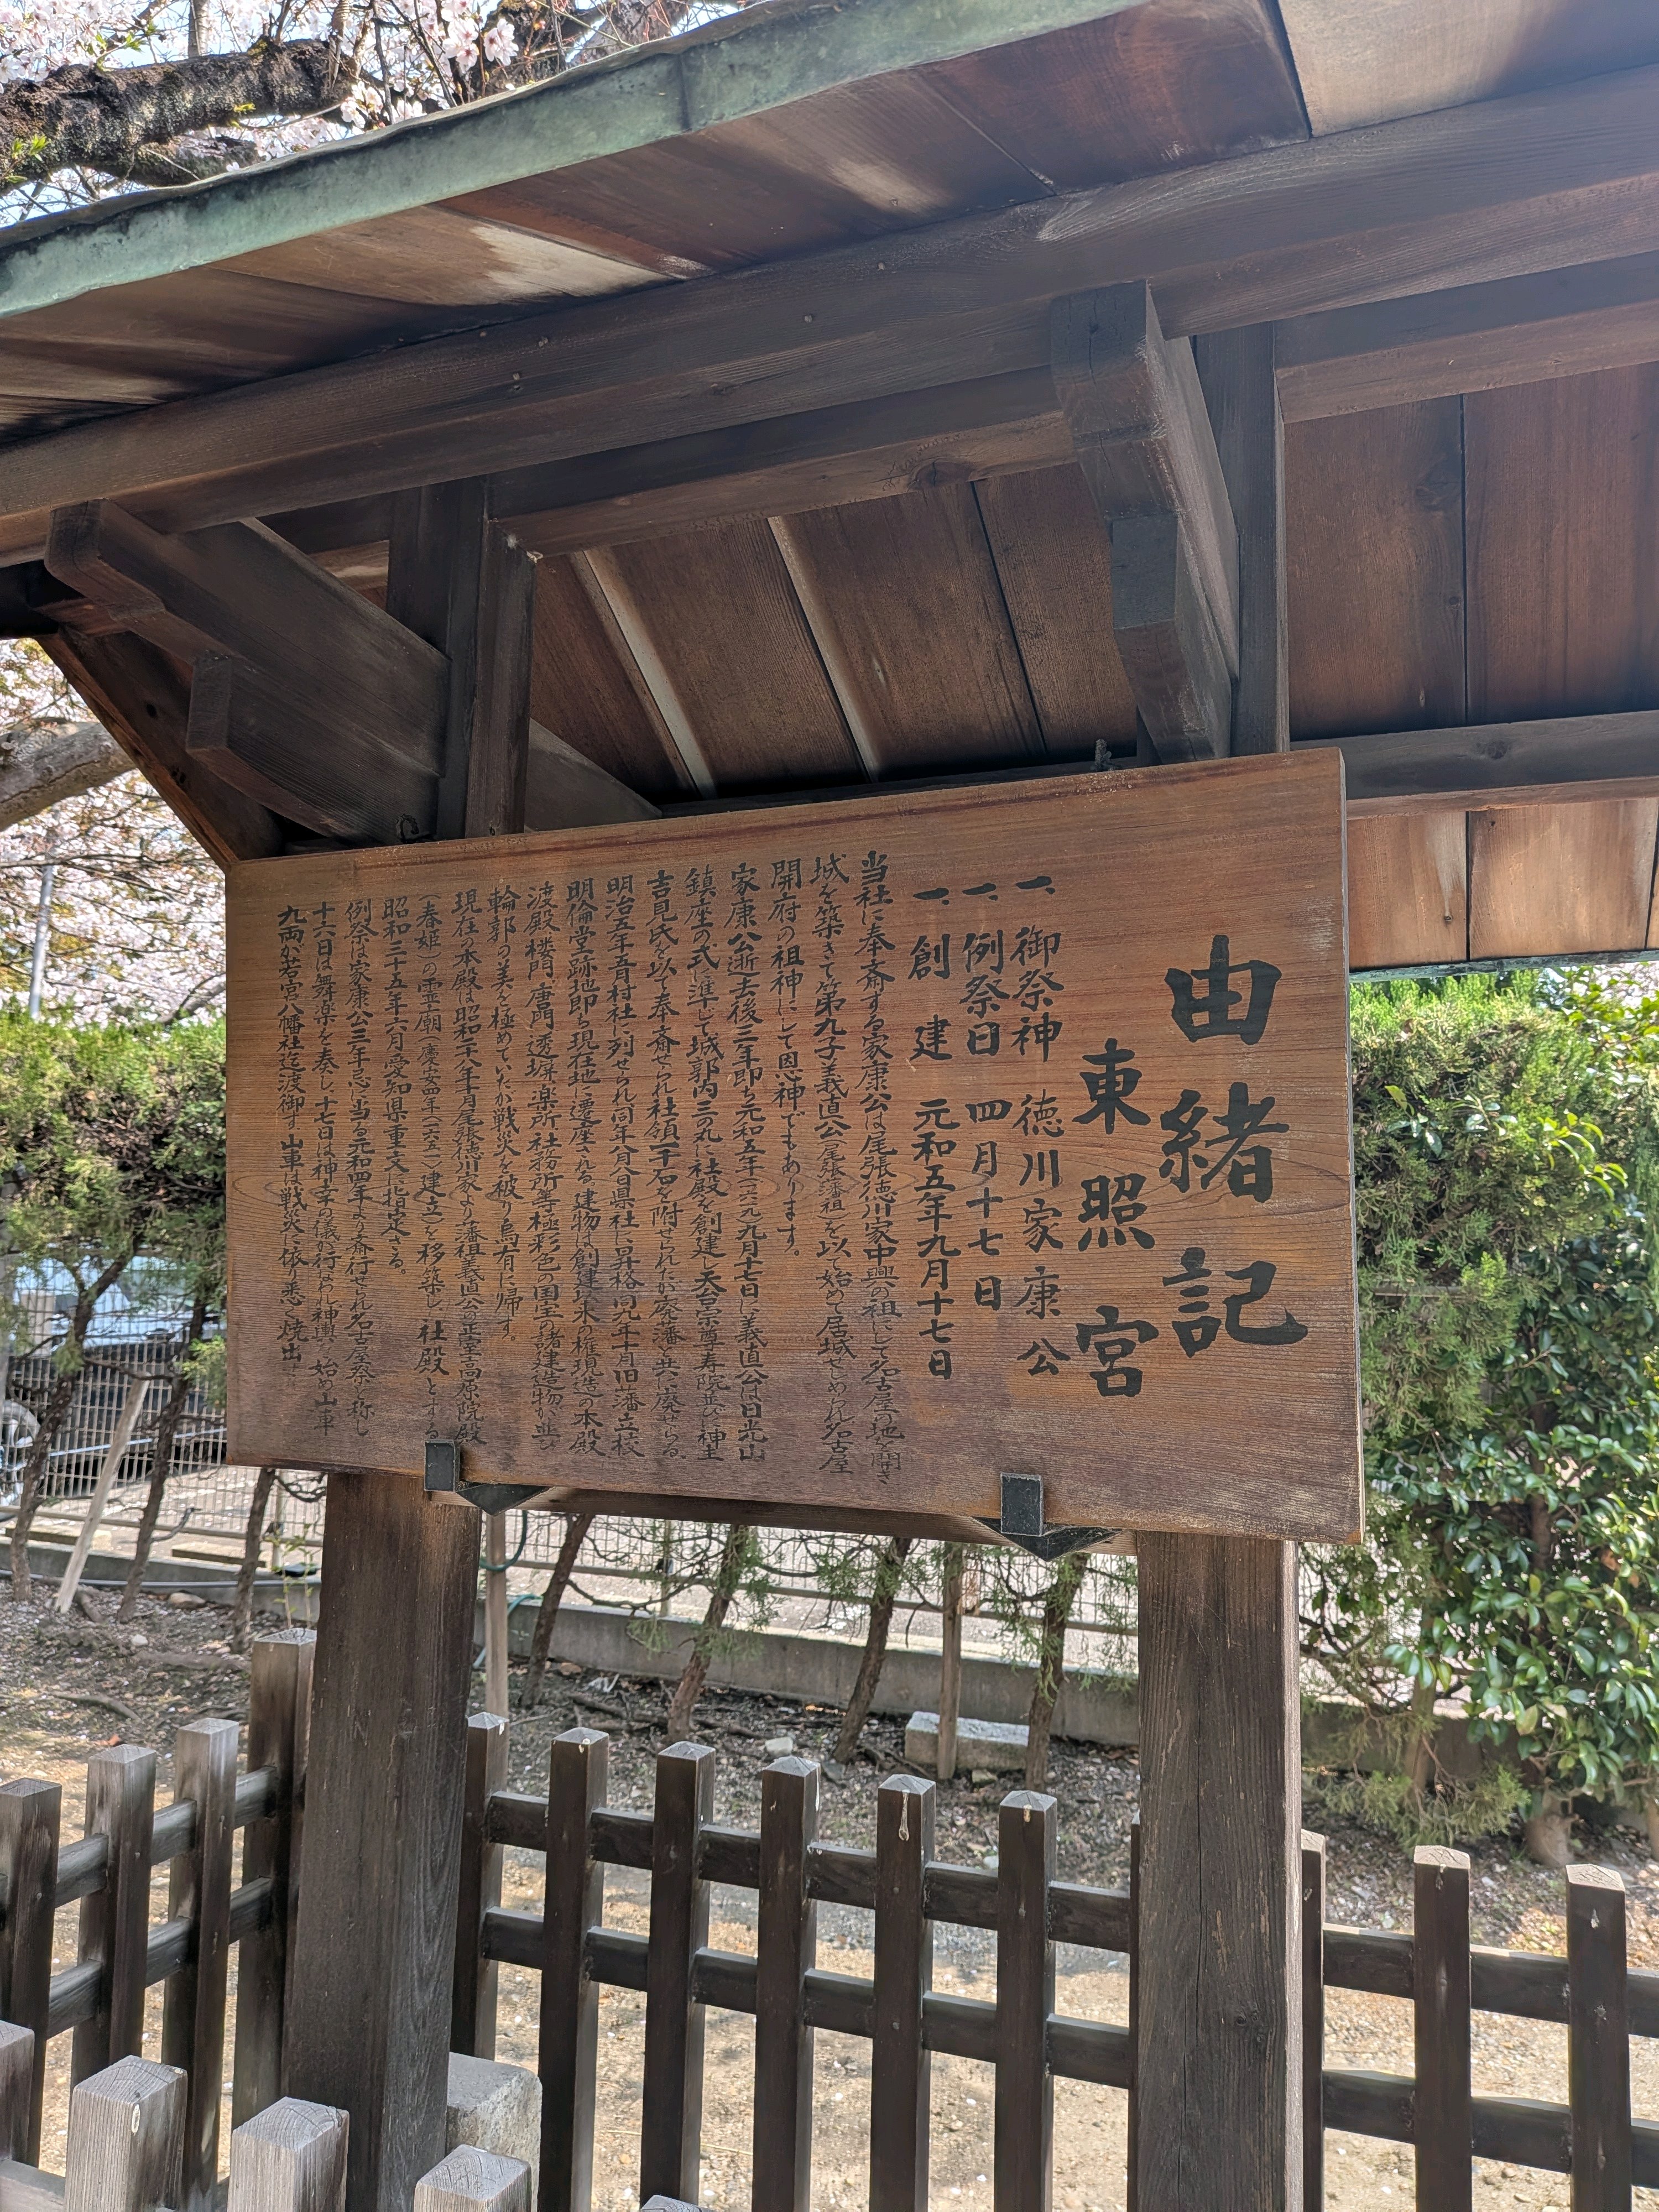 由緒記
東照宮
一、御祭神 徳川家康公
一、例祭日 四月十七日
一、創建 元和五年九月十七日
当社に奉斎する家康公は尾張徳川家中興の祖にして名古屋の地を開き
城を築きて第九子義直公(尾張藩祖)を以て始めて居城せしめられ名古屋
開府の祖神にして恩神でもあります。
家康公逝去後三年即ち元和五年(一六一九)九月十七日に義直公は日光山
鎮座の式に準じて城郭内三の丸に社殿を創建し天台宗尊寿院並びに神主
吉見氏を以て奉斎せられ社領一千石を附せられたが廃藩と共に廃せらる。
明治五年五月村社に列せられ同年八月八日県社に昇格同九年十月旧藩立校
明倫堂跡地即ち現在地に遷座される。建物は創建以来の権現造の本殿
渡殿、楼門、唐門、透塀、楽所、社務所等極彩色の国宝の諸建造物が並び
輪郭の美を極めていたが戦災を被り烏有に帰す。
現在の本殿は昭和二十八年十月尾張徳川家より藩祖義直公の正室高原院殿
(春姫)の霊廟(慶安四年(一六五一)建立)を移築し、社殿とする
昭和三十五年六月愛知県重文に指定さる。
例祭は家康公三年忌に当る元和四年より斎行せられ名古屋祭と称し
十六日は舞楽を奏し、十七日は神幸の儀が行なわれ神輿を始め山車
九両が若宮八幡社迄渡御す。山車は戦災に依り悉く焼出